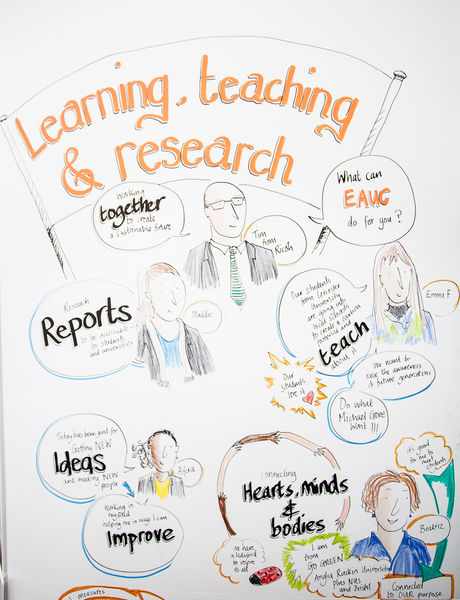 Learning, teaching
& research
What can
EAUC
do for you?
Working
together
to create
a sustainable future
Tim
from
Ricoh
Research
Reports
to be accessible
to students
and universities
Maddie
Our students
from Leicester
University
are going into
local schools
to create a carbon
footprint and
teach
about it
Emma F
Our
students
love it
We want to
raise the awareness
of future generations
Do what
Michael Gove
wont !!!
Today has been good for
Getting NEW
Ideas
and meeting NEW
people
Working in
my field
helping me in ways I can
Improve
connecting
Hearts, minds
&
bodies
it's good
for me to
meet
students
Beatriz
we have
a ladybird to
inspire
us all
I am
from
Go GREEN
Anglia Ruskin University
plus NUS
and Bristol
Connected
to OUR purpose
measures